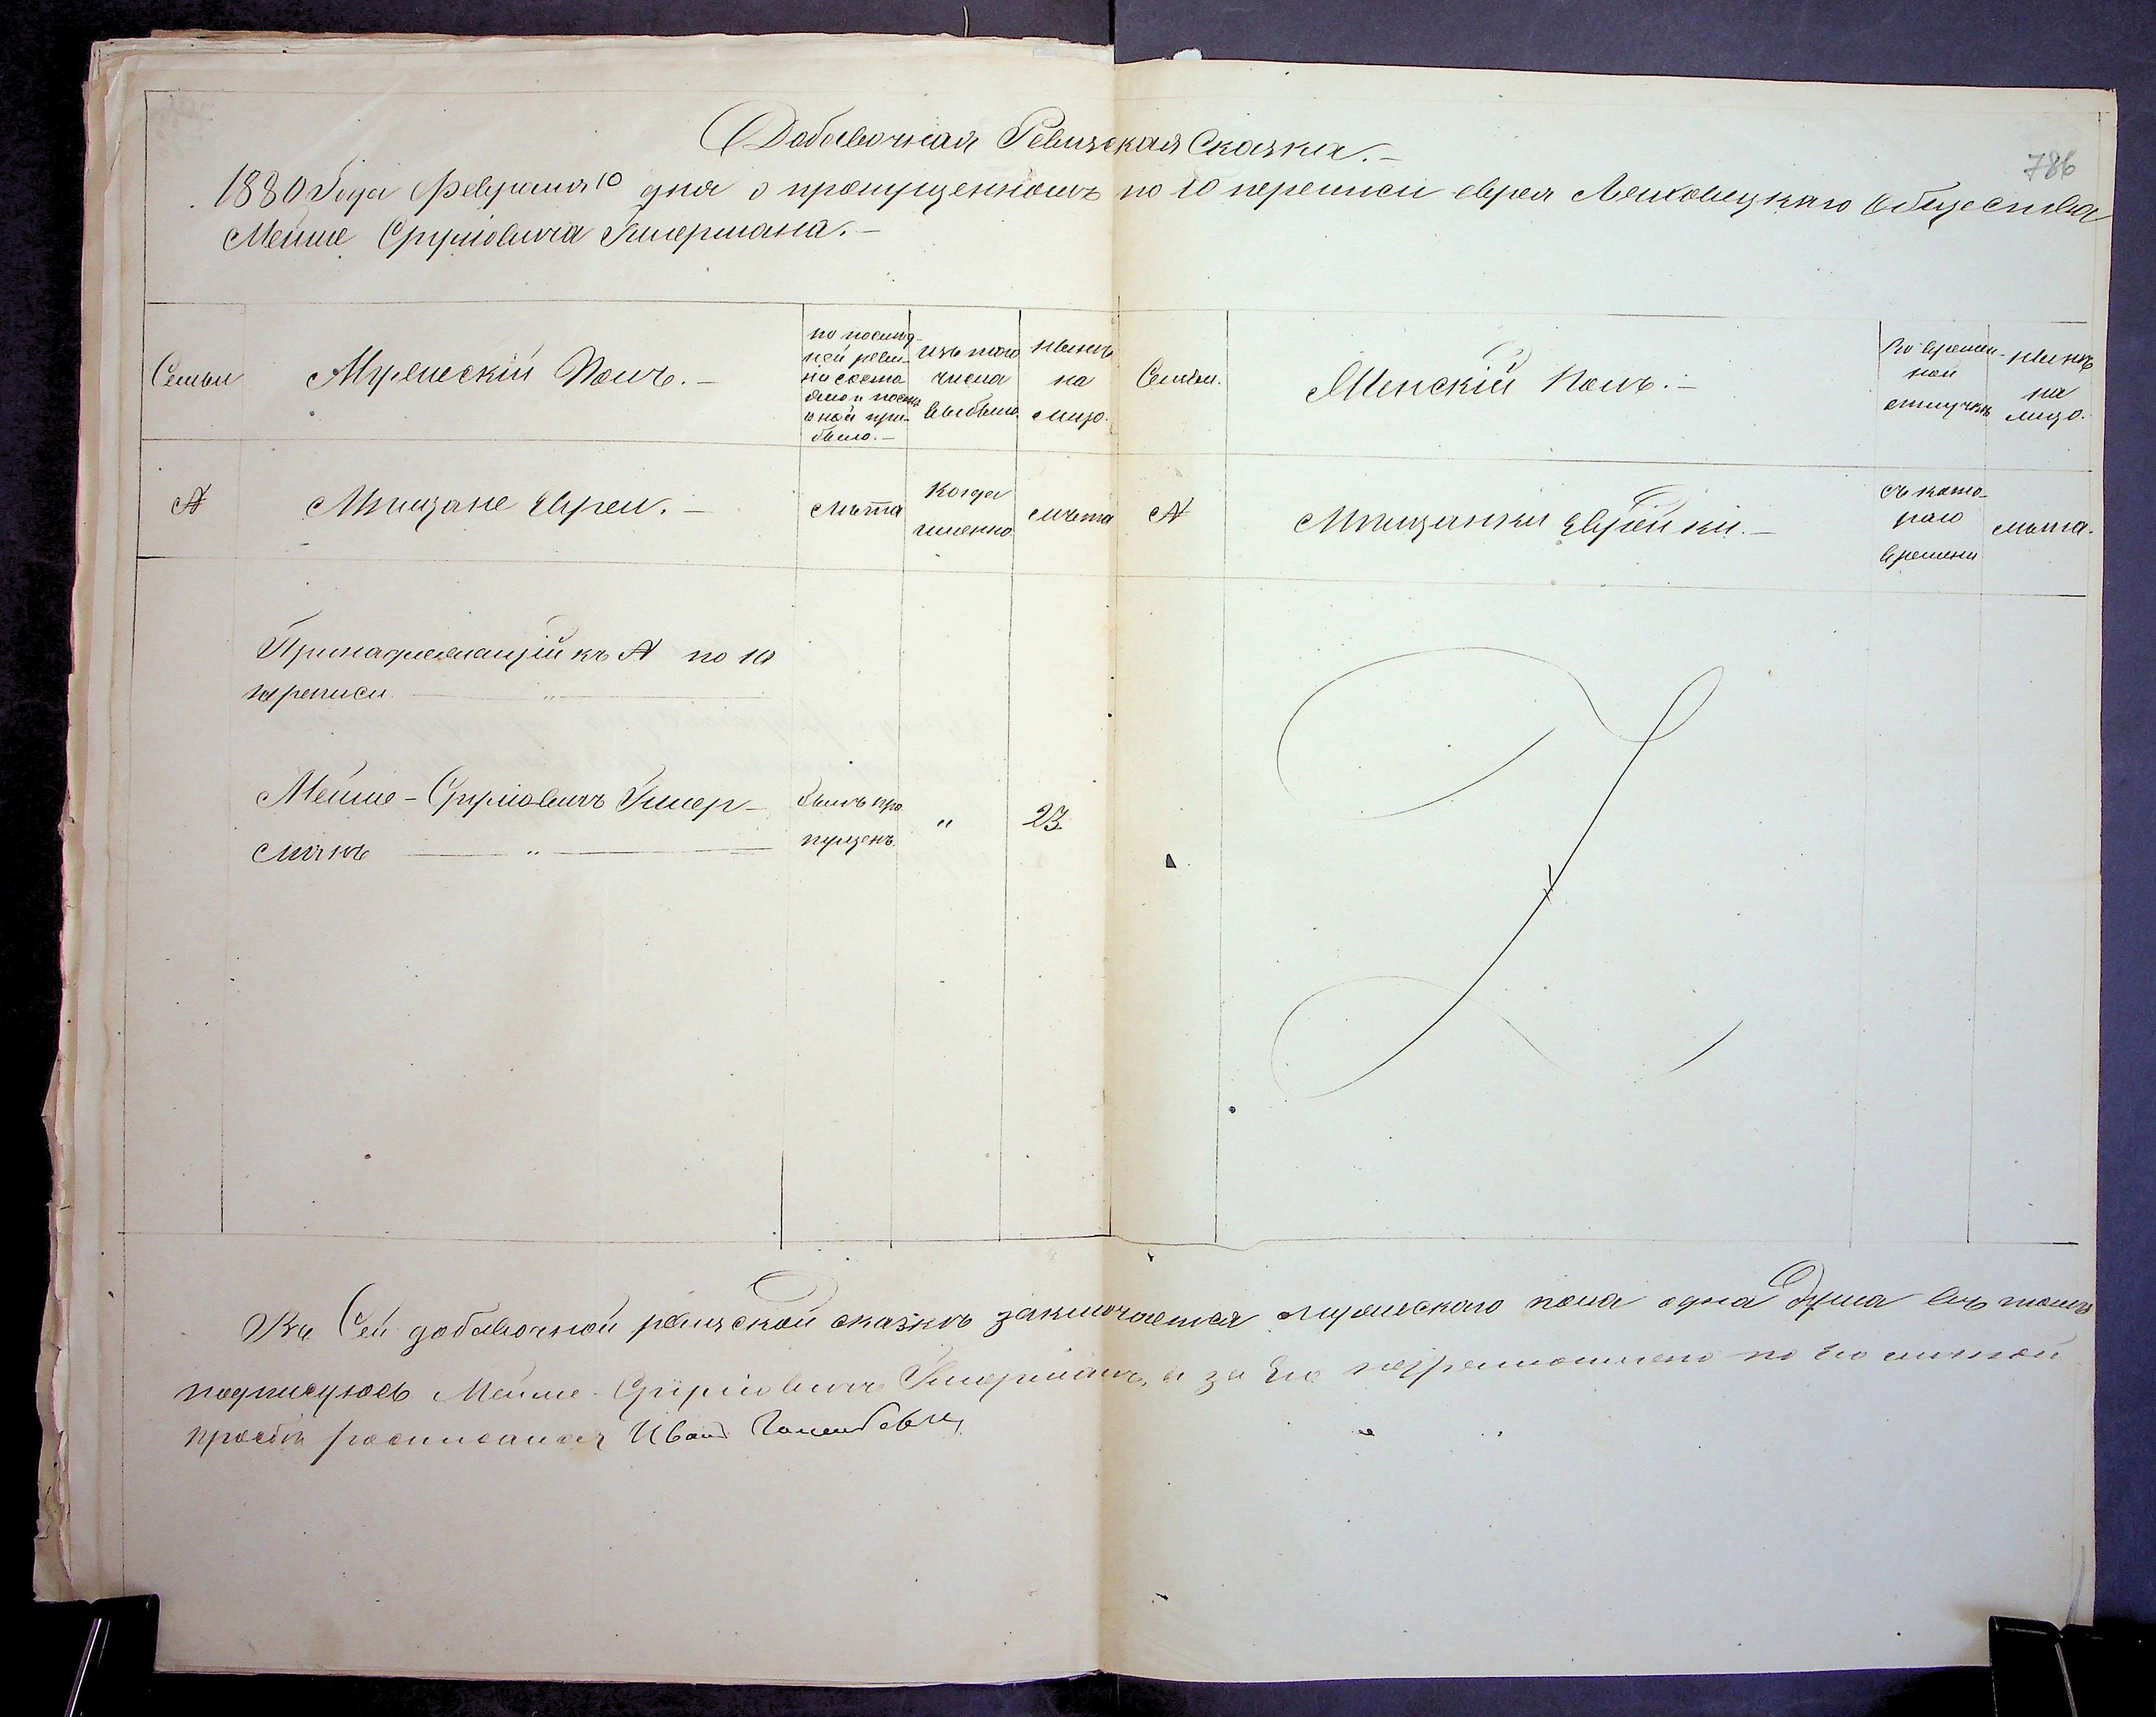 Добавочная Ревизская Сказка.-
786
1880 Года Февраля 10 дня о пропущенномъ по 10 переписи еврея Ляховецкаго Общества
Мейше Сруліовича Гитермана.-
Семьи
Мужескій Полъ.-
по послѣд-
ней реви-
зіи состо
яло и послѣ
оной при-
было.-
изъ того
числа
выбыло
нынѣ
на
лицо.
Семьи.
Женскій Полъ.-
Во времен-
ной
отлучкѣ
нынѣ
на
лицо.
№
Мѣщане Евреи.-
Лѣта
Когда
именно
лѣта
№
Мѣщанки Еврейки.-
съ кото-
раго
времени
лѣта.
Принадлежащій къ № по 10
переписи "
Мейше-Сруліовичъ
былъ про
" 23
"
пущенъ.
Въ Сей добавочной ревизской сказкѣ заключается мужескаго пола одна душа въ томъ
подписуюсь Мейше-Сруліовичъ а за его неграмотного по его личной
прозбѣ росписался Иванъ